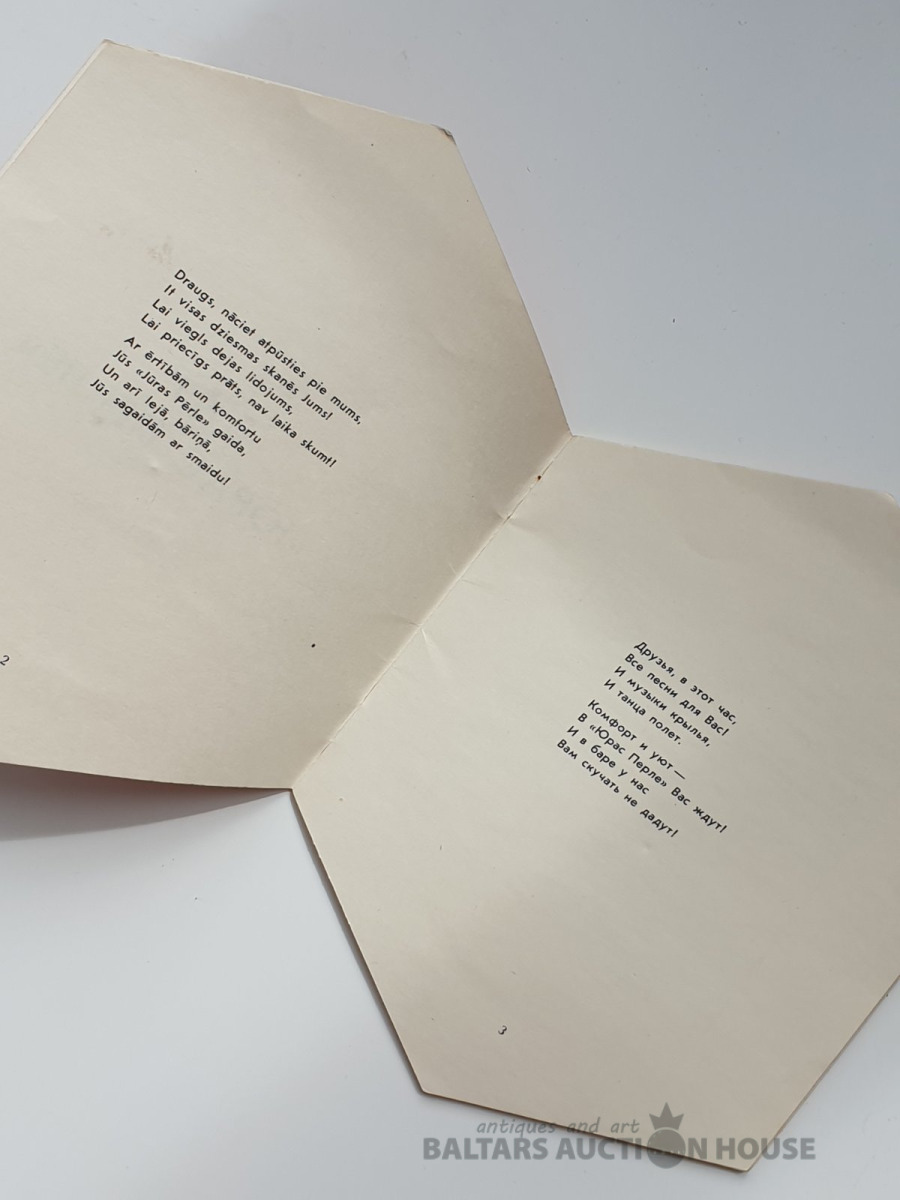 Draugs, nāciet atpūsties pie mums,
It visas dziesmas skanēs Jums!
Lai viegls dejas lidojums,
Lai priecīgs prāts, nav laika skumt!
Ar ērtībām un komfortu
Jūs «Jūras Pērle» gaida,
Un arī lejā, bāriņā,
Jūs sagaidām ar smaidu!
2
Друзья, в этот час,
Все песни для Вас!
И музыки крылья,
И танца полет.
Комфорт и уют —
В «Юрас Перле» Вас ждут!
И в баре у нас
Вам скучать не дадут!
3
antiques and art
BALTARS AUCTION HOUSE